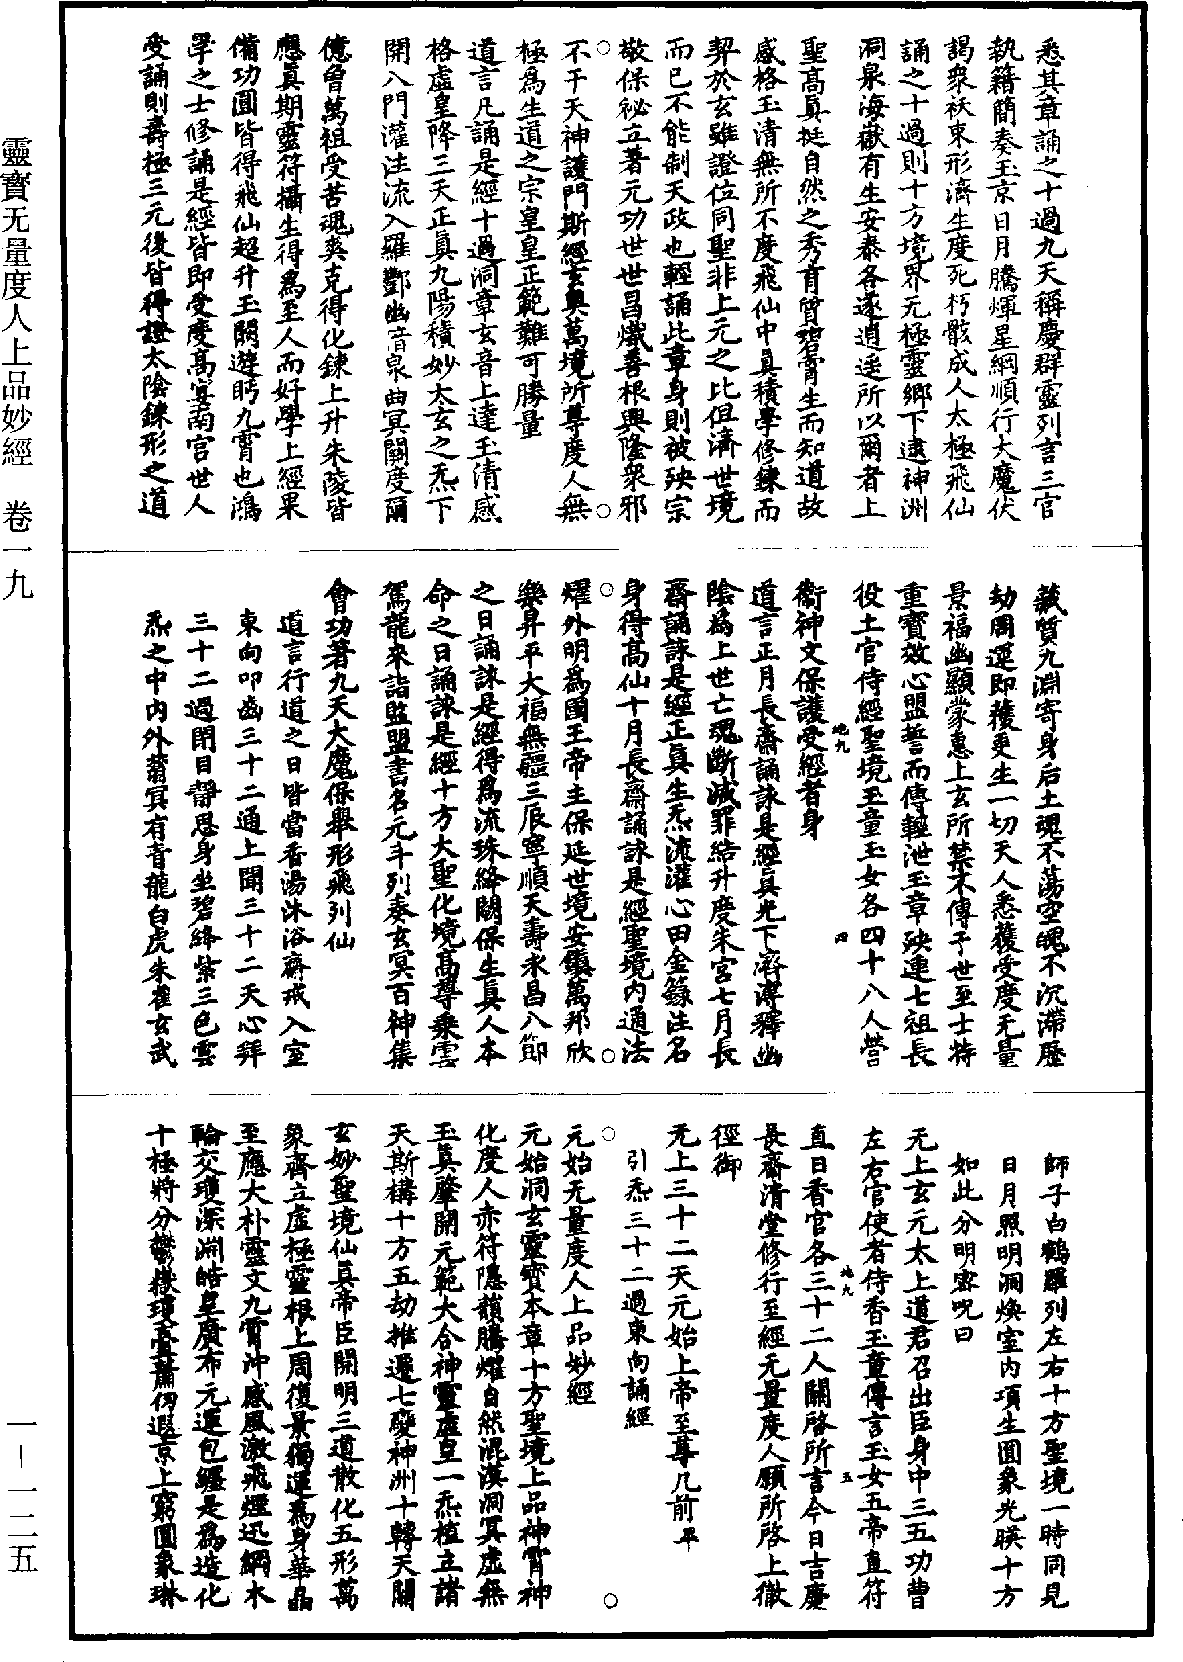 靈寶无量度人上品妙經　卷一九
悉其章誦之十過九天稱慶群靈列言三官
執籍簡奏玉京日月騰煇星綱順行大魔伏
謁衆祆束形濟生度死朽骸成人太極飛仙
誦之十過則十方境界无極靈鄉下逮神洲
洞泉海嶽有生安泰各遂逍遥所以爾者上
聖高真挺自然之秀育質碧霄生而知道故
感格玉清無所不度飛仙中真積學修鍊而
契於玄雖證位同聖非上元之比但濟世境
而已不能制天政也輕誦此章身則被殃宗
敬保祕立著元功世世昌熾善根興隆衆邪
不干天神護門斯經玄奥萬境所尊度人無
極爲生道之宗皇皇正範難可勝量
道言凡誦是經十過洞章玄音上達玉清感
格虛皇降三天正真九陽積妙太玄之炁下
開八門灌注流入羅酆幽音泉曲冥關度爾
億曾萬祖受苦魂爽克得化鍊上升朱陵皆
應真期靈符攝生得爲至人而好學上經果
備功圓皆得飛仙超升玉闕遊眄九霄也鴻
學之士修誦是經皆即受度高宴南宫世人
受誦則壽極三元後皆得證太陰鍊形之道
藏質九淵寄身后土魂不蕩空魄不沉滯歷
劫周運即穫更生一切天人悉獲受度无量
景福幽顯蒙惠上玄所禁不傳子世至士特
重寶效心盟誓而傳輕泄玉章殃連七祖長
役土官侍經聖境玉童玉女各四十八人營
衛神文保護受經者身
地九
四
道言正月長齋誦詠是經真光下濟溥釋幽
陰爲上世亡魂斷滅罪結升度朱宫七月長
齋誦詠是經正真生炁流灌心田金籙注名
身得高仙十月長齋誦詠是經聖境内通法
燿外明爲國王帝主保延世境安鎮萬邦欣
樂昇平大福無疆三辰寧順天壽永昌八節
之日誦詠是經得爲流珠絳闕保生真人本
命之日誦詠是經十方大聖化境高尊乘雲
駕龍來詣監盟書名元斗列奏玄冥百神集
會功著九天大魔保舉形飛列仙
道言行道之日皆當香湯沐浴齋戒入室
東向叩齒三十二通上聞三十二天心拜
三十二過閉目靜思身坐碧絳紫三色雲
炁之中内外蓊冥有青龍白虎朱雀玄武
師子白鶴羅列左右十方聖境一時同見
日月照明洞煥室内項生圓象光暎十方
如此分明密呪曰
无上玄元太上道君召出臣身中三五功曹
左右官使者侍香玉童傳言玉女五帝直符
直日香官各三十二人關啓所言今日吉慶
地九
五
長齋清堂修行至經无量度人願所啓上徹
徑御
无上三十二天元始上帝至尊几前 平
引炁三十二過東向誦經
元始无量度人上品妙經
元始洞玄靈寶本章十方聖境上品神霄神
化度人赤符隱韻騰燿自然混漠洞冥虛無
玉真肇開元範大合神靈虛皇一炁植立諸
天斯構十方五劫推遷七變神洲十轉天關
玄妙聖境仙真帝臣開明三道散化五形萬
象齊立虛極靈根上周復景獨運爲身華晶
至應大朴靈文九霄沖感風激飛煙迅綱木
輪交瓊深淵皓皇廣布元運包纏是爲造化
十極將分鬱撲瓊臺蕭仞遐京上窮圓象琳
一—一二五